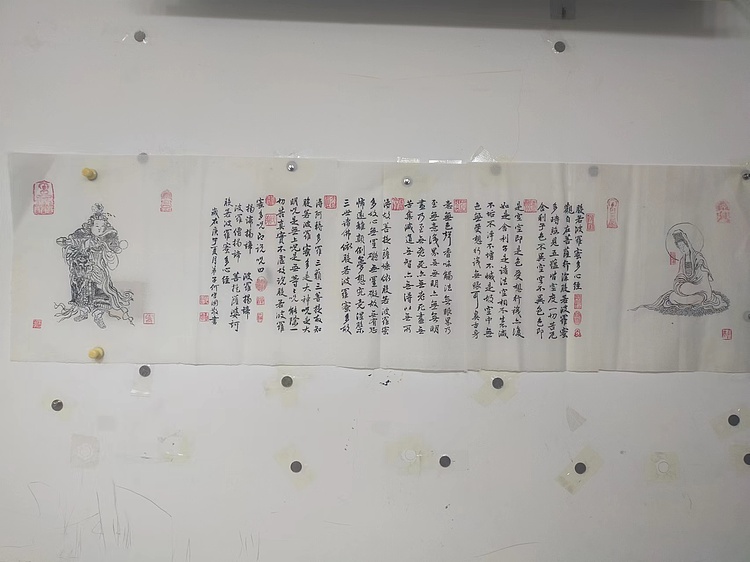 般若波羅蜜多心經
觀自在菩薩行深般若波羅蜜
多時照見五蘊皆空度一切苦厄
舍利子色不異空空不異色色即
是空空即是色受想行識亦復
如是舍利子是諸法空相不生不滅
不垢不淨不增不減是故空中無
色無受想行識無眼耳鼻舌身
意無色聲香味觸法無眼界乃
至無意識界無無明亦無無明
盡乃至無老死亦無老死盡無
苦集滅道無智亦無得以無所
得故菩提薩埵依般若波羅蜜
多故心無罣礙無罣礙故無有恐
怖遠離顛倒夢想究竟涅槃
三世諸佛依般若波羅蜜多故
得阿耨多羅三藐三菩提故知
般若波羅蜜多是大神咒是大
明咒是無上咒是無等等咒能除一
切苦真實不虛故說般若波羅
蜜多咒即說咒曰
揭諦揭諦 波羅揭諦
波羅僧揭諦 菩提薩婆訶
般若波羅蜜多心經
歲在庚子夏月弟子何